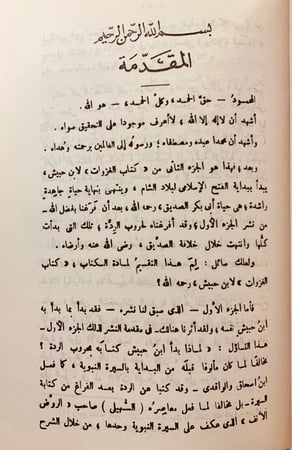 بسم الله الرحمن الرحيم
المقدمة
المحمود — حق الحمد، وكل الحمد — هو الله.
وأشهد أن لا إله إلا الله، لا أعرف موجودا على التحقيق سواه.
وأشهد أن محمدا عبده ومصطفاه؛ ورسوله إلى العالمين برحمته وهداه.
وبعد؛ فهذا هو الجزء الثانى من « كتاب الغزوات، لابن حبيش،
يبدأ ببداية الفتح الإسلامى لبلاد الشام، وينتهى بنهاية حياة جاهدة
راشدة؛ هى حياة أبى بكر الصديق، رحمه الله، بعد أن فرغنا بفضل الله -
من نشر الجزء الأول؛ وقد أفرغناه لحروب الردة؛ تلك التى بدأت
كلها وانتهت خلال خلافة الصديق، رضى الله عنه وأرضاه.
ولعلك سائل: لم هذا التقسيم لمادة الكتاب، « كتاب
الغزوات، لابن حبيش، رحمه الله؟
فأما الجزء الأول — الذى سبق لنا نشره — فقد بدأ بما بدأ به
ابن حبيش نفسه، ولقد أثرنا هنالك - فى مقدمة النشر لذلك الجزء الأول -
هذا التساؤل: « لماذا بدأ ابن حبيش كتابه بحروب الردة؟
مخالفا لما كان مألوفا قبله من البداية بالسيرة النبوية، كما فعل
ابن اسحاق والواقدى - وقد كتبا عن الردة بعد الفراغ من كتابة
السيرة - بل مخالفا لما فعل معاصره (السهيلى) صاحب « الروض
الأنف، الذى عكف على السيرة النبوية وحدها، من خلال الشرح